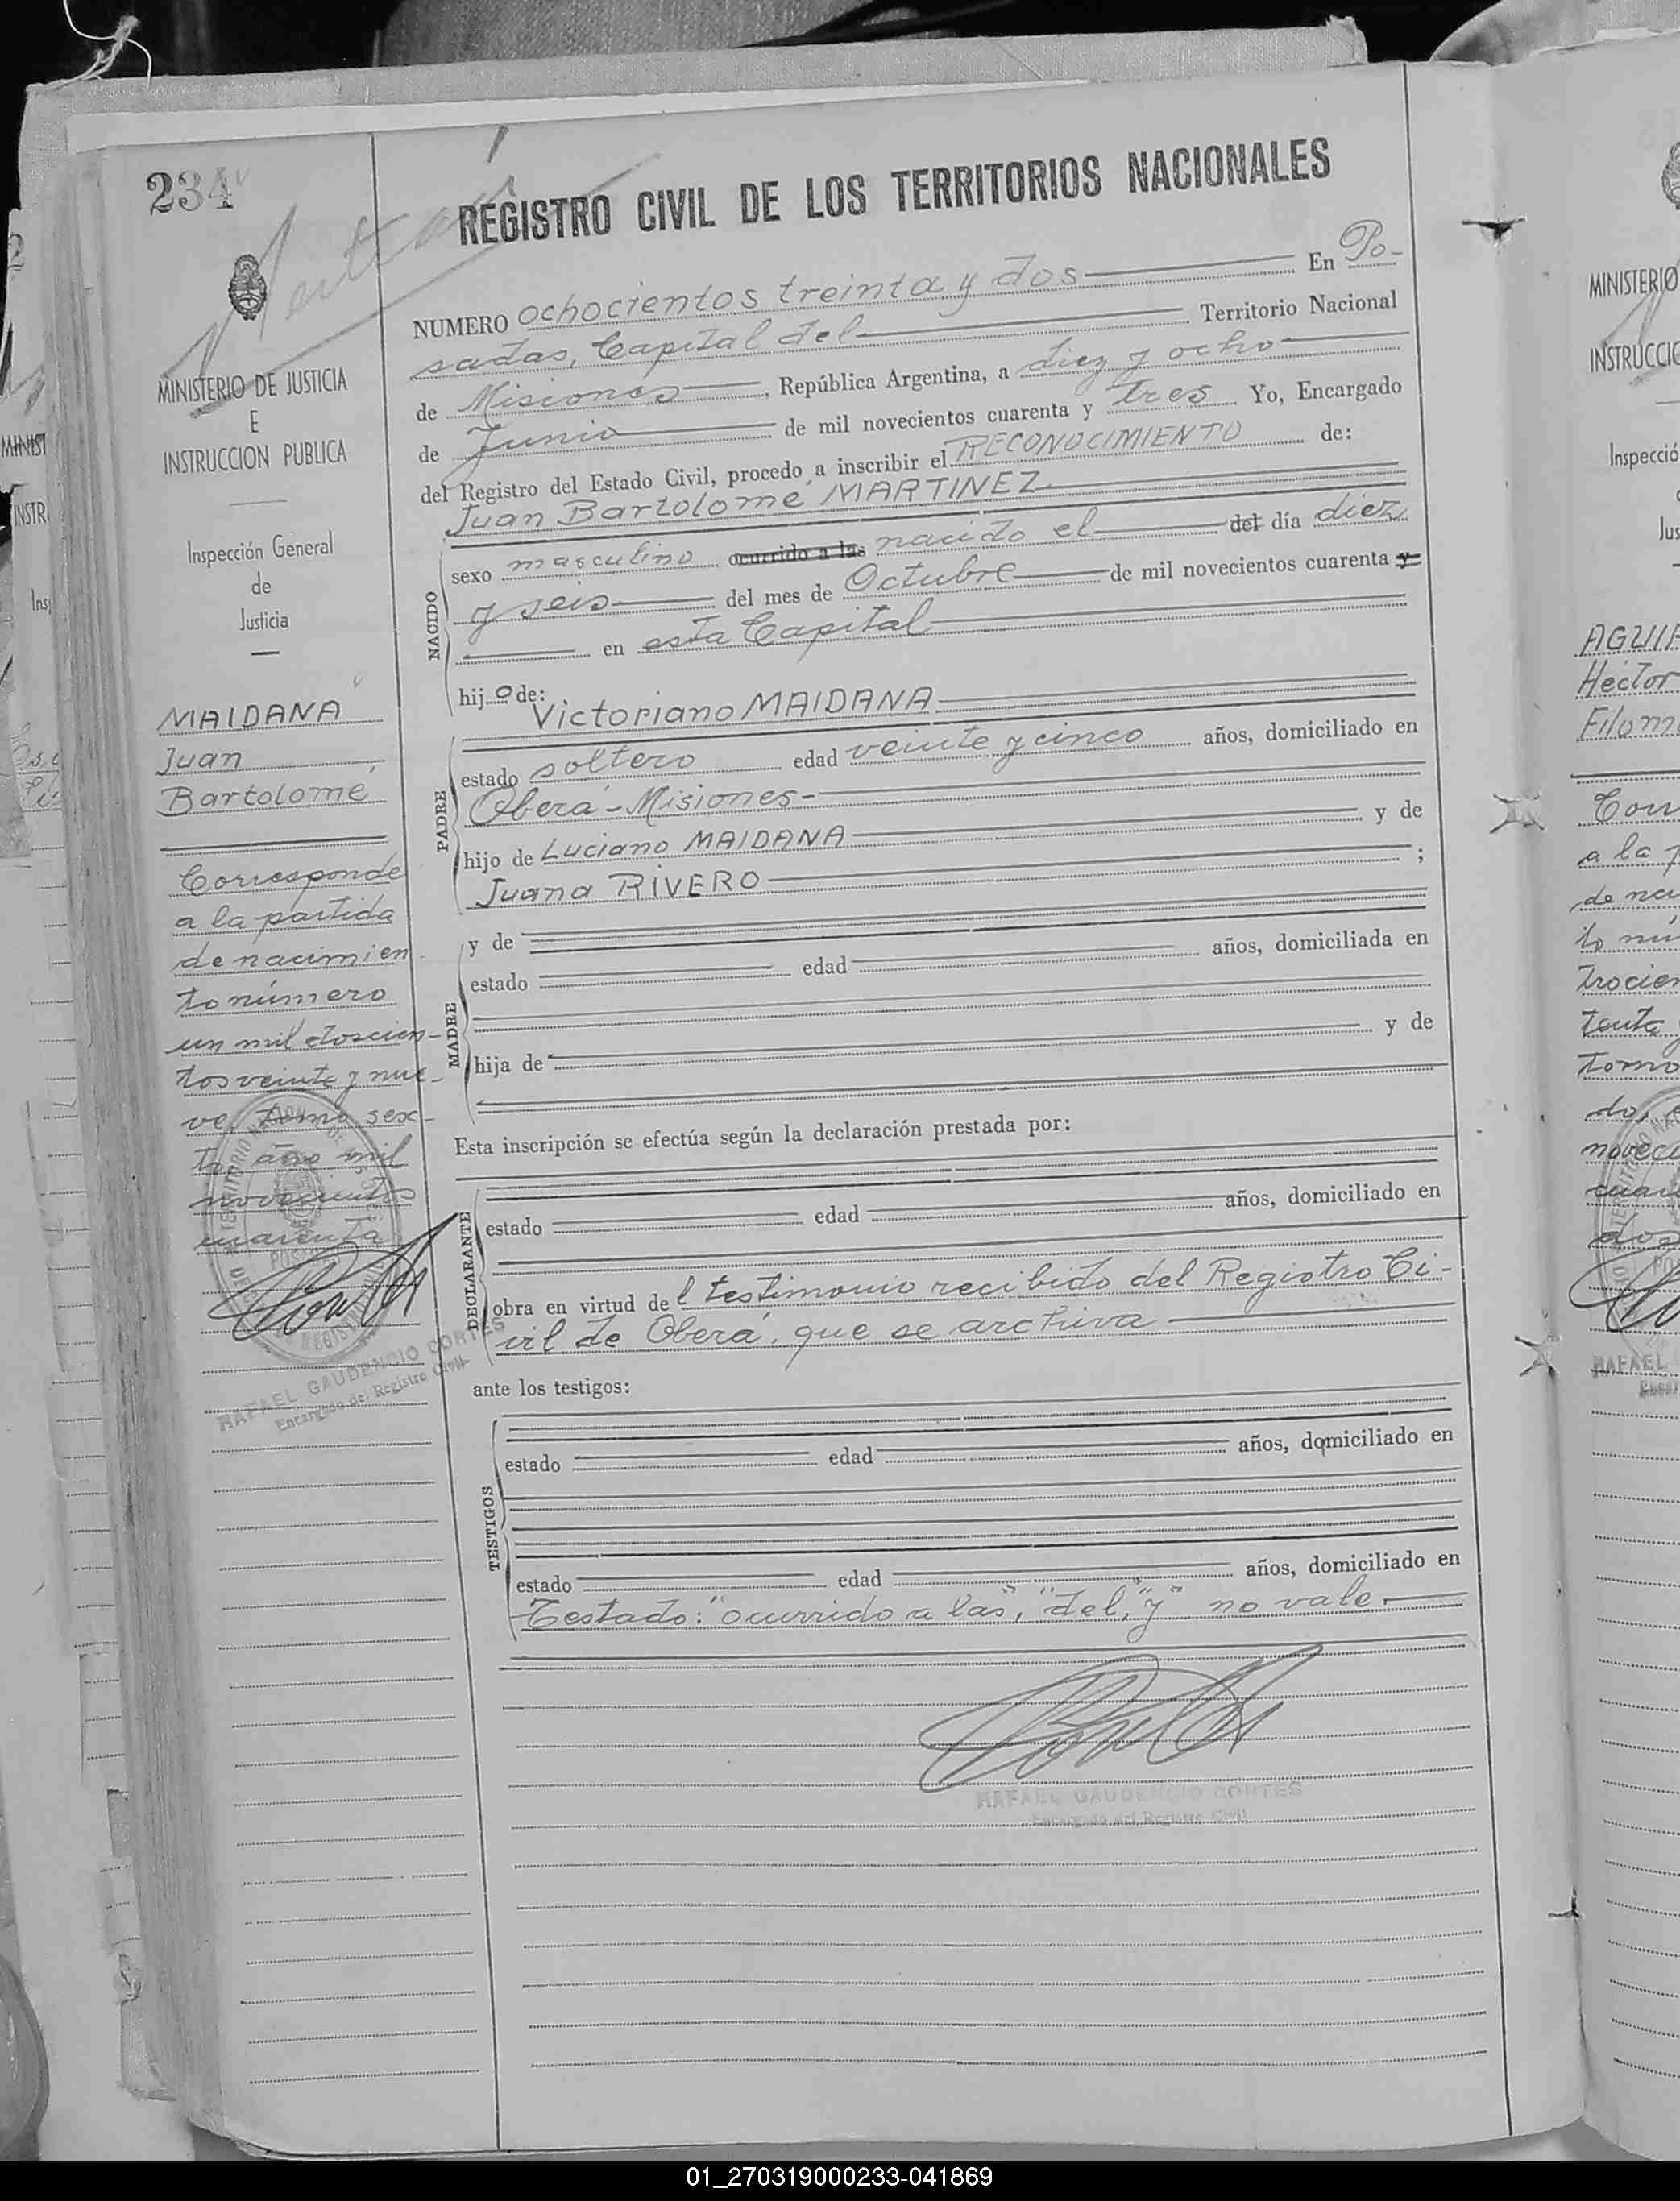 234
REGISTRO CIVIL DE LOS TERRITORIOS NACIONALES
MINISTERIO DE JUSTICIA
E
INSTRUCCION PUBLICA
Inspección General
de
Justicia
MAIDANA
Juan
Bartolomé
Corresponde
a la partida
de nacimien
to número
un mil doscien-
tos veinte y nue-
ve, tomo sex-
to, año mil
novecientos
cuarenta
RAFAEL GAUDENCIO CORTES
Encargado del Registro Civil
NUMERO ochocientos treinta y dos En Po-
sadas, Capital del Territorio Nacional
de Misiones, República Argentina, a diez y ocho
de Junio de mil novecientos cuarenta y tres Yo, Encargado
del Registro del Estado Civil, procedo a inscribir el RECONOCIMIENTO de:
Juan Bartolomé MARTINEZ
NACIDO
sexo masculino ocurrido a las nacido el del día diez
y seis del mes de Octubre de mil novecientos cuarenta y
en esta Capital
hijo de:
Victoriano MAIDANA
PADRE
estado soltero edad veinte y cinco años, domiciliado en
Oberá - Misiones -
hijo de Luciano MAIDANA y de
Juana RIVERO ;
MADRE
y de
estado edad años, domiciliada en
hija de y de
Esta inscripción se efectúa según la declaración prestada por:
DECLARANTE
estado edad años, domiciliado en
obra en virtud del testimonio recibido del Registro Ci-
vil de Oberá, que se archiva
ante los testigos:
TESTIGOS
estado edad años, domiciliado en
estado edad años, domiciliado en
Testado: "ocurrido a las", "del", "y" no vale.
RAFAEL GAUDENCIO CORTES
Encargado del Registro Civil
MINISTERIO
INSTRUCCIO
Inspecció
Jus
AGUIR
Héctor
Filom
a la p
de na
to nú
trocien
tenta
tomo
do, a
novecie
cuar
dos
RAFAEL
MINIST
INSTR
Ins
01_270319000233-041869